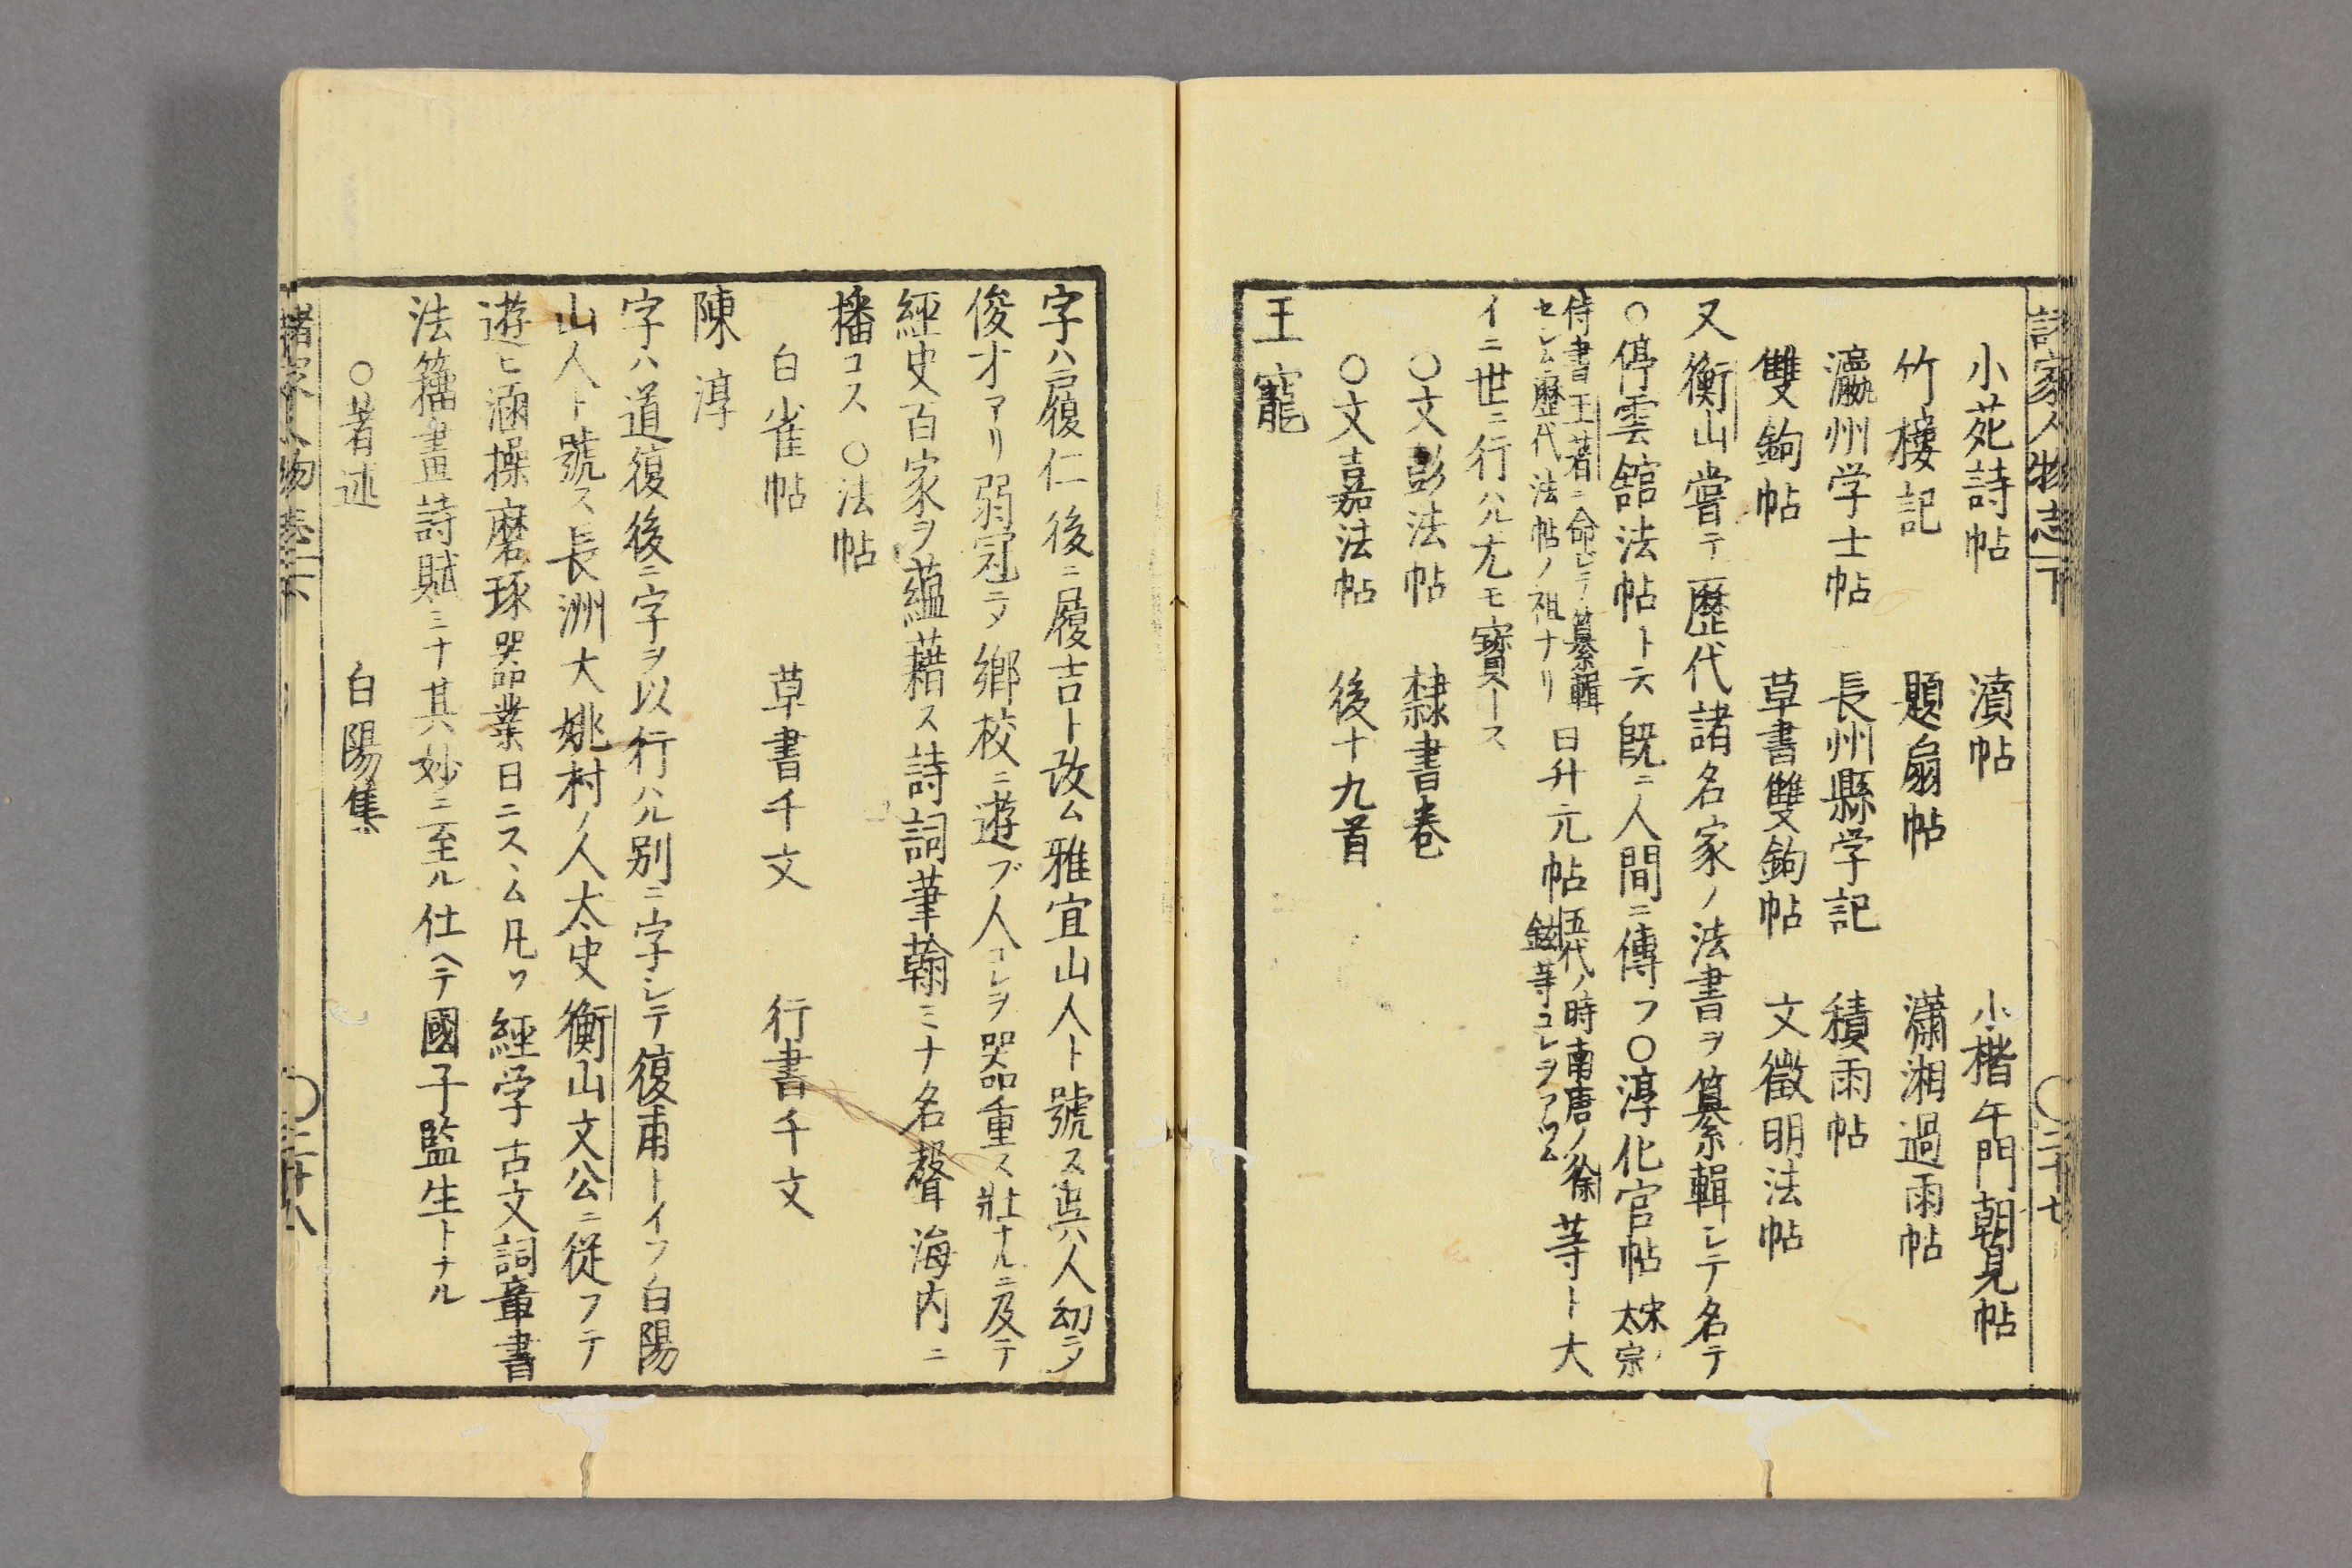 諸家人物志下 〇二十七
小苑詩帖 濆帖 小楷午門朝見帖
竹樓記 題扇帖 瀟湘過雨帖
瀛州学士帖 長州縣学記 積雨帖
雙鉤帖 草書雙鉤帖 文徵明法帖
又衡山嘗テ歷代諸名家ノ法書ヲ纂輯シテ名テ
〇停雲舘法帖ト云既ニ人間ニ傳フ〇淳化官帖 宋ノ太宗
侍書王著ニ命シテ纂輯
セシム歷代法帖ノ祖ナリ
日升元帖
五代ノ時南唐ノ徐
鉉等コレヲアツム
等ト大
イニ世ニ行ハル尤モ寳トス
〇文彭法帖 隸書卷
〇文嘉法帖 後十九首
王寵
字ハ履仁後ニ履吉ト改ム雅宜山人ト號ス吳人幼ニシテ
俊才アリ弱冠ニシテ鄉校ニ遊ブ人コレヲ器重ス壯ナルニ及テ
經史百家ヲ蘊藉ス詩詞筆翰ミナ名聲海内ニ
播コス 〇法帖
白雀帖 草書千文 行書千文
陳淳
字ハ道復後ニ字ヲ以行ハル別ニ字シテ復甫トイフ白陽
山人ト號ス長洲大姚村ノ人太史衡山文公ニ従フテ
遊ヒ涵操磨琢器業日ニスヽム凡ソ經学古文詞章書
法籀畫詩賦ミナ其妙ニ至ル仕ヘテ國子監生トナル
〇著述 白陽集
諸家人物志下 〇二十八